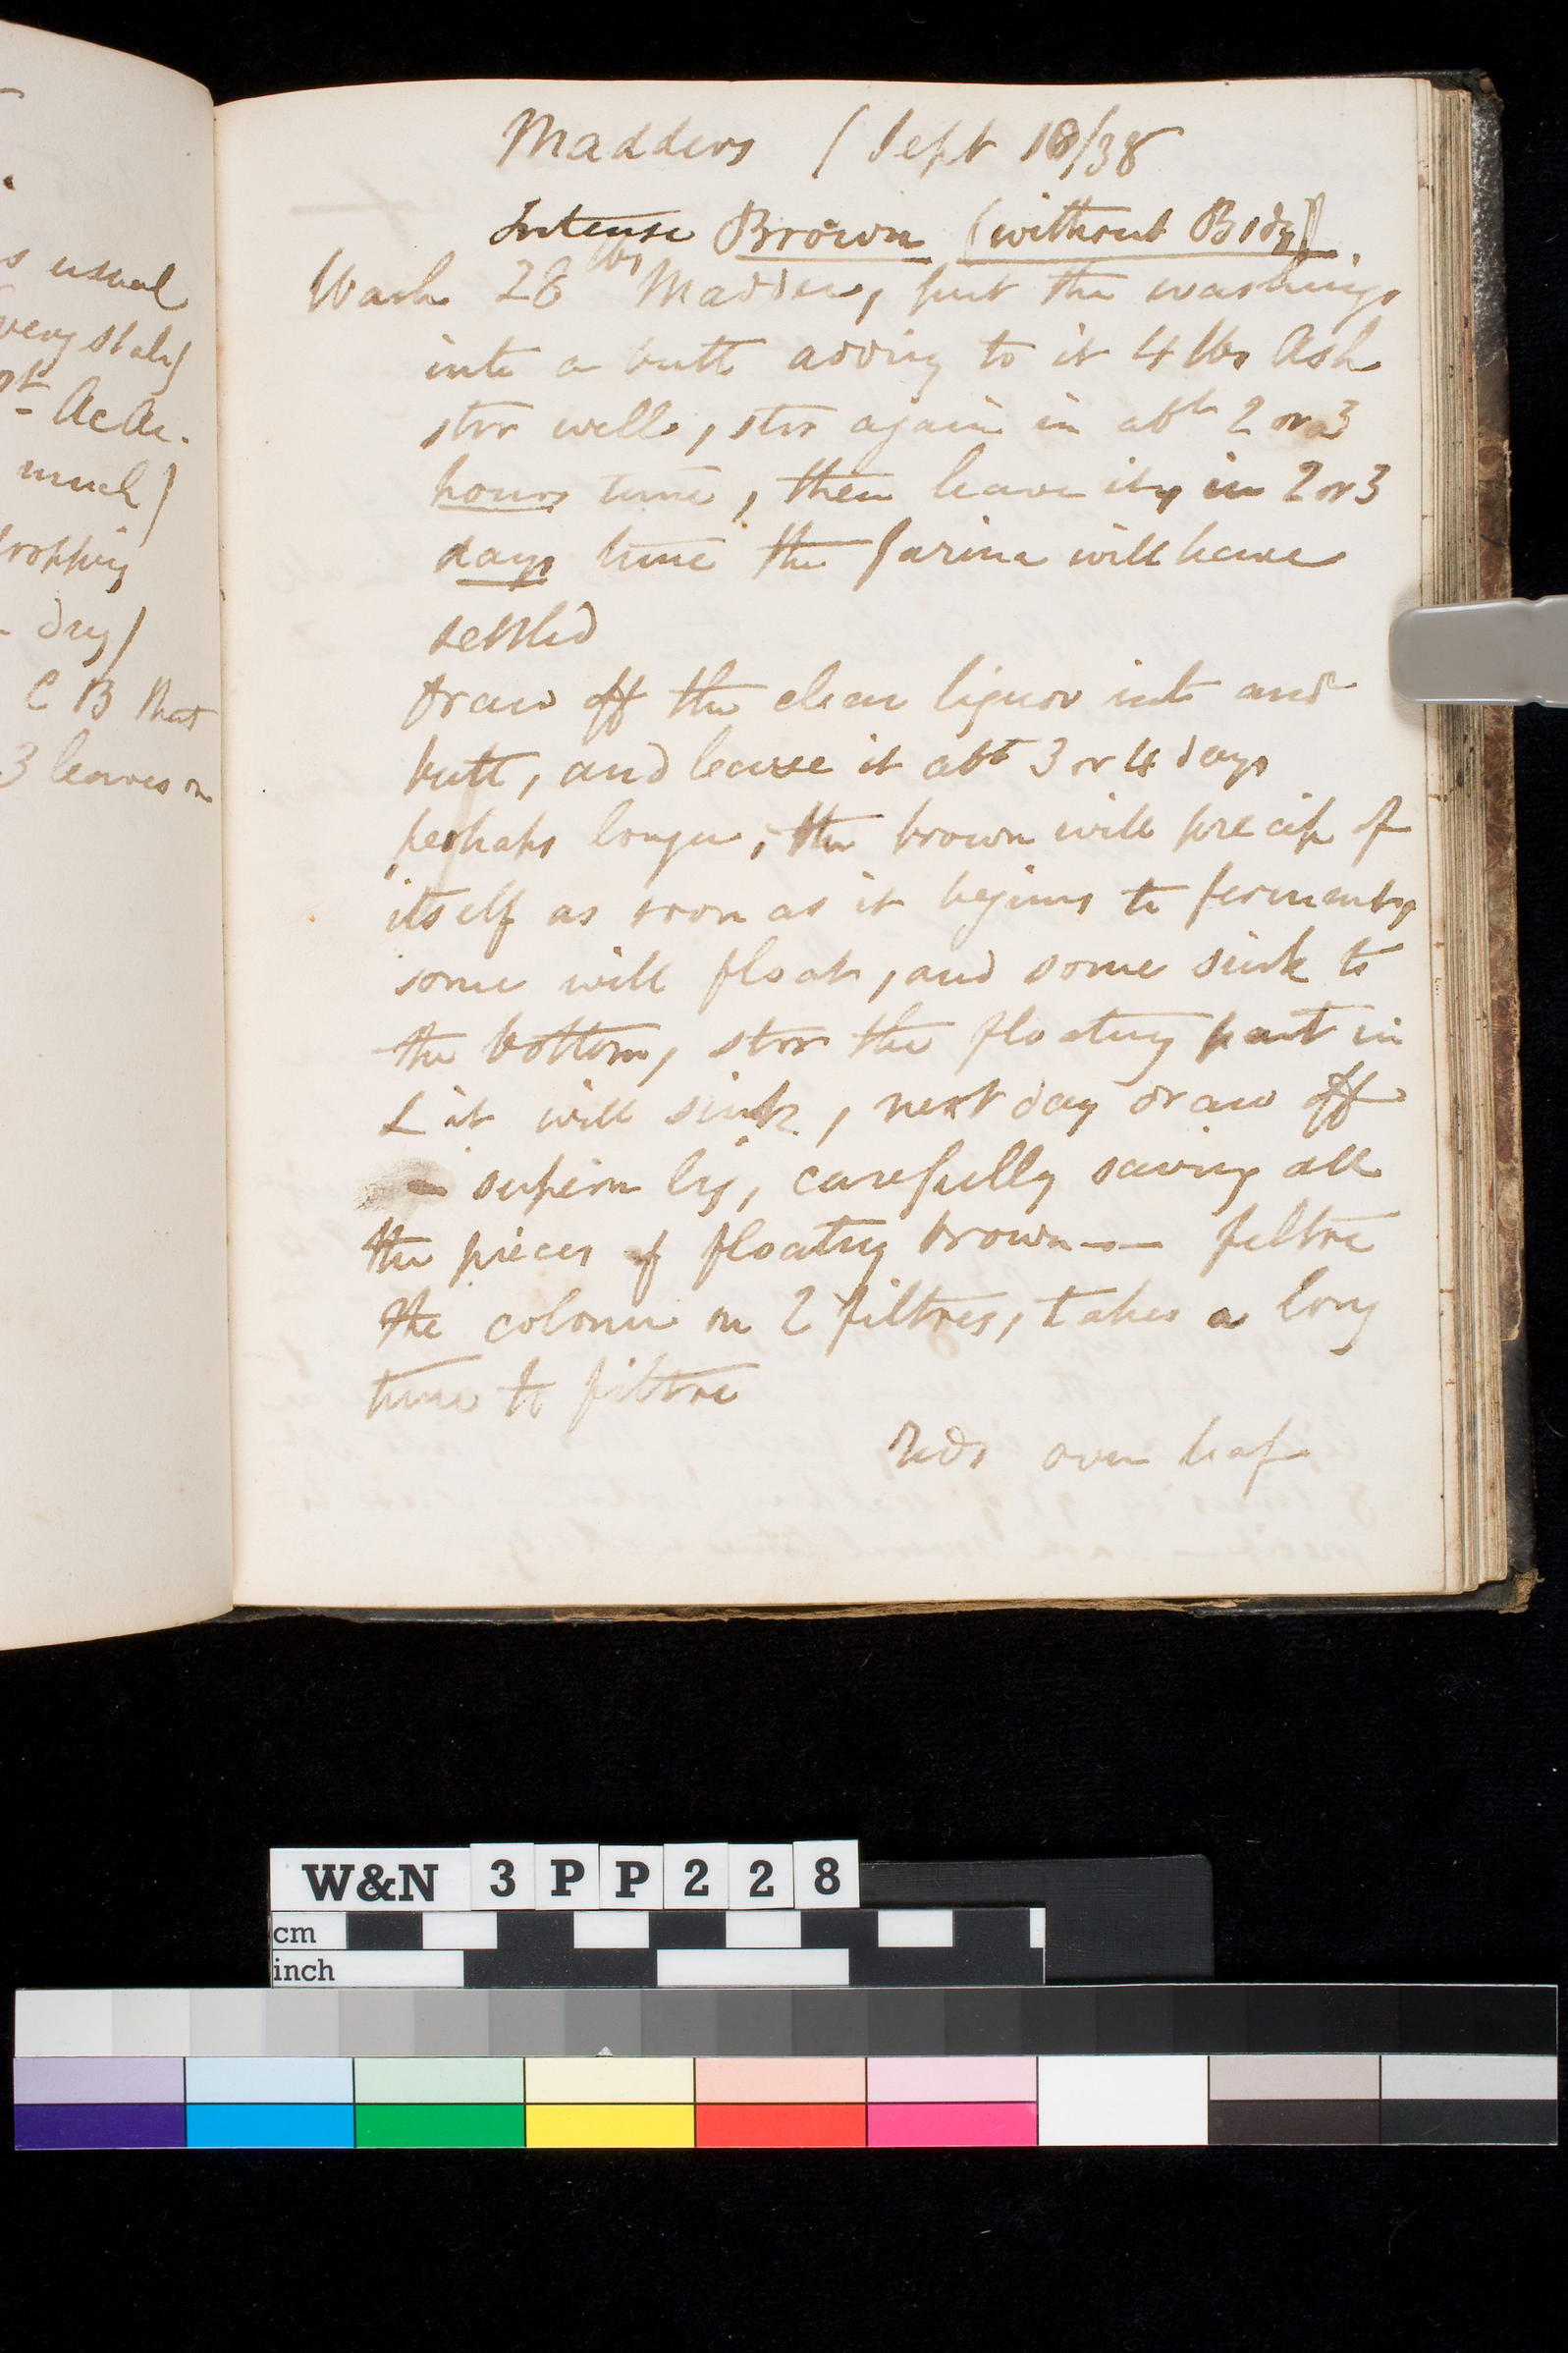 s usual
very stale)
- AcAc.
much)
dropping
- dry)
C B that
3 leaves on
Madders (Sept 18/38
Intense Brown (without Body)
Wash 28 lbs Madder, put the washings
into a butt adding to it 4 lbs Ash
stir well, stir again in abt 2 or 3
hours time, then leave it, in 2 or 3
days time the farina will have
settled
Draw off the clear liquor into anor
butt, and leave it abt 3 or 4 days
perhaps longer, the brown will precip of
itself as soon as it begins to ferment,
some will float, and some sink to
the bottom, stir the floating part in
& it will sink, next day draw off
supern liq, carefully saving all
the pieces of floating brown — filtre
the colour on 2 filtres, takes a long
time to filtre
Reds over leaf
W&N 3PP228
cm
inch